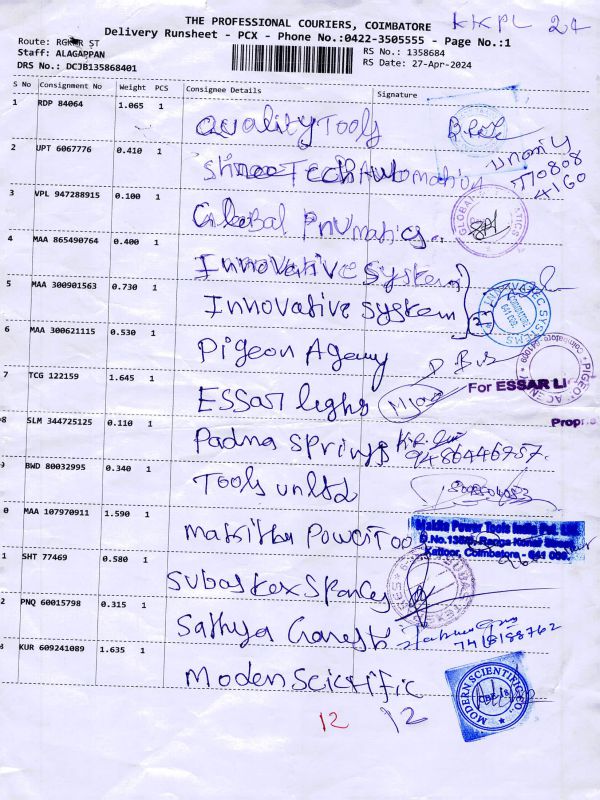 THE PROFESSIONAL COURIERS, COIMBATORE
KKPL 24
Delivery Runsheet - PCX - Phone No.:0422-3505555 - Page No.:1
Route: ST
Staff: ALAGAPPAN
RS No.: 1358684
DRS No.: DCJB135868401
RS Date: 27-Apr-2024
S No Consignment No Weight PCS Consignee Details Signature
1 RDP 84064 1.065 1 Quality Tools
2 UPT 6067776 0.410 1 Shree Tech Automation
770808
4160
3 VPL 947288915 0.100 1 Global Pnumatics
4 MAA 865490764 0.400 1 Innovative System
5 MAA 300901563 0.730 1 Innovative system
6 MAA 300621115 0.530 1 Pigeon Agency
7 TCG 122159 1.645 1 ESSar lights
For ESSAR LI
Propri
8 SLM 344725125 0.110 1 Padma Springs
9486446757
9 BWD 80032995 0.340 1 Tools
0 MAA 107970911 1.590 1 makitha PowerToo
Makita Power Tools India Pvt.
Kattoor, Coimbatore - 641 009.
1 SHT 77469 0.580 1
2 PNQ 60015798 0.315 1 Sathya Ganesh
7418188762
3 KUR 609241089 1.635 1 Moden Scictific
MODERN SCIENTIFIC CO.
CBE-18
12 12